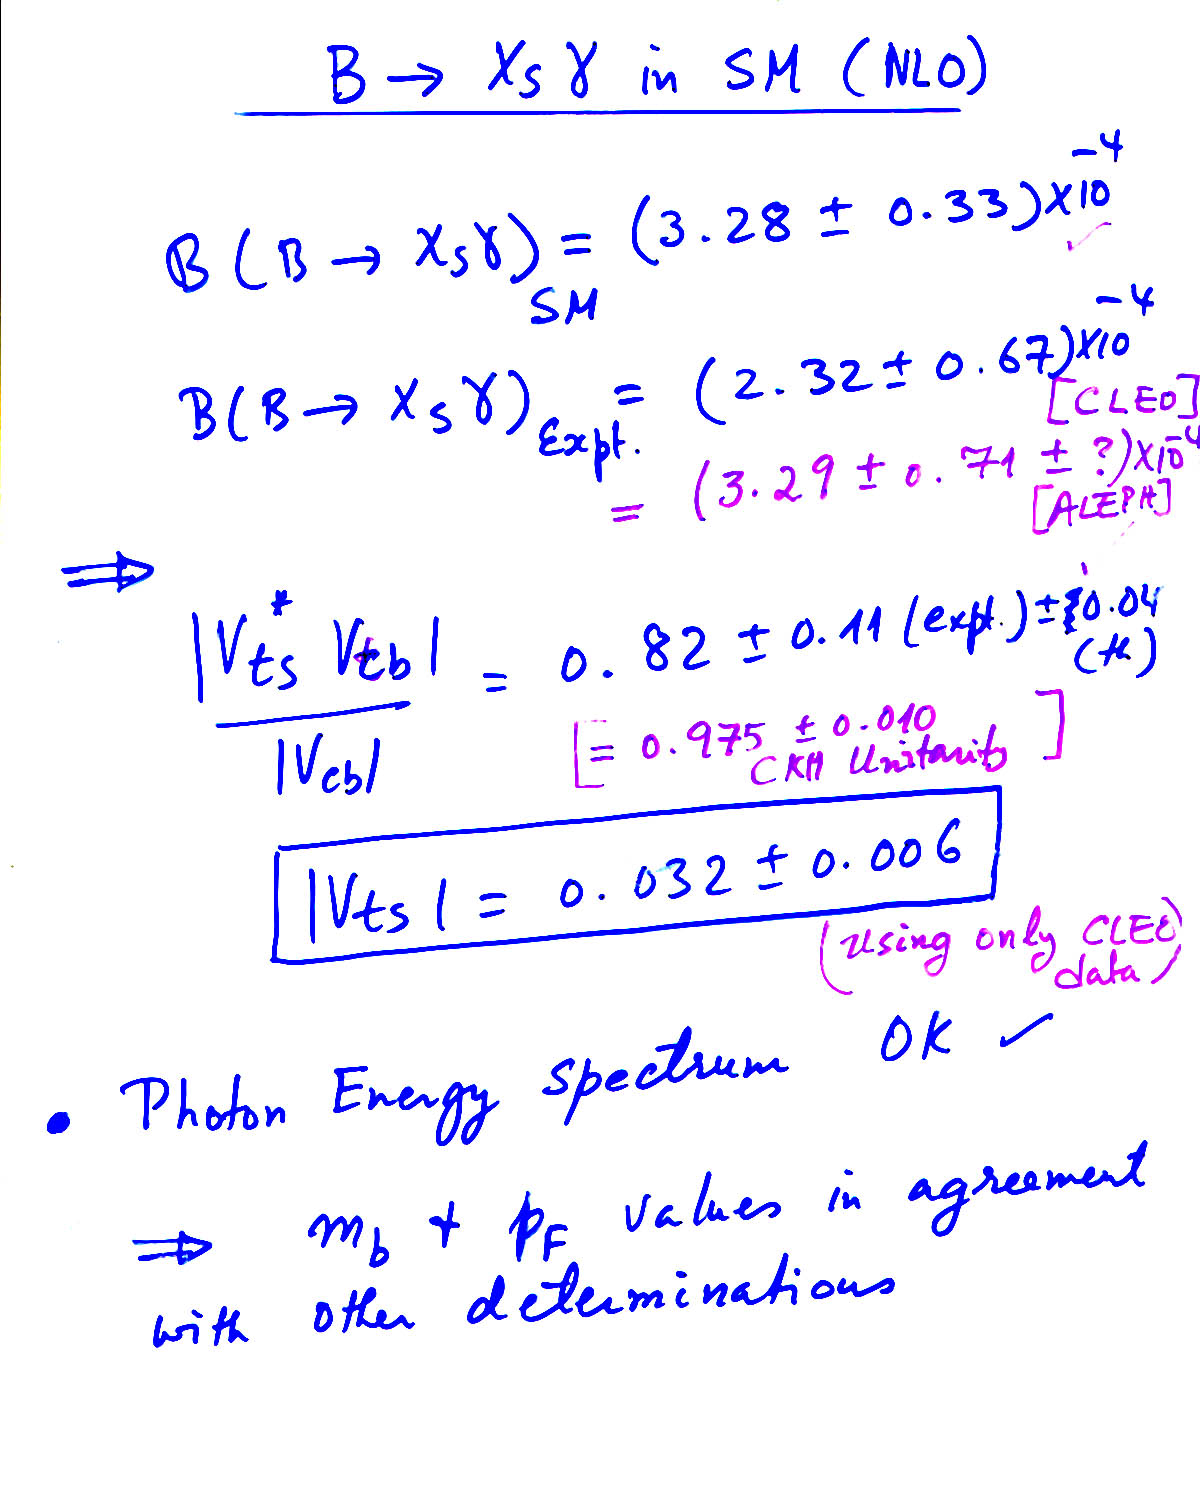 B → Xs γ in SM (NLO)
B(B → Xs γ)SM = (3.28 ± 0.33)×10^-4 ✓
B(B → Xs γ)Expt. = (2.32 ± 0.67)×10^-4
[CLEO]
= (3.29 ± 0.71 ± ?)×10^-4
[ALEPH]
⇒
|Vts* Vtb| / |Vcb| = 0.82 ± 0.11 (expt.) ± 0.04 (th)
[= 0.975 ± 0.010
CKM Unitarity]
|Vts| = 0.032 ± 0.006
(Using only CLEO
data)
• Photon Energy spectrum OK ✓
⇒ mb + pF values in agreement
with other determinations